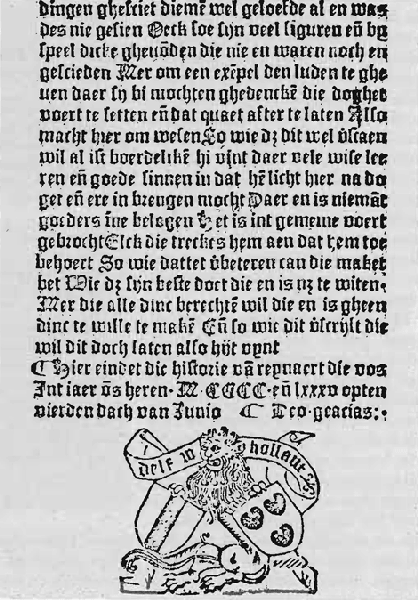 dingen ghesciet diemē wel geloefde al en was
des nie gesien Oeck soe sijn veel figuren eñ by
speel dicke gheuōden die nie en waren noch en
gescieden Mer om een exēpel den luden te ghe
uen daer sy bi mochten ghedenckē die doghet
voert te setten eñ dat quaet after te laten Also
macht hier om wesen So wie dz dit wel v̄staen
wil al ist boerdelikē hi vint daer vele wise lee
ren eñ goede sinnen in dat hē licht hier na do
get eñ ere in brengen mocht Daer en is niemāt
goeders īne belogen Het is int gemeine voert
gebrocht Elck die treckes hem aen dat hem toe
behoert So wie dattet v̄beteren can die maket
bet Wie dz sijn beste doet die en is nz te witen·
Mer die alle dinc berechtē wil die en is gheen
dinc te wille te makē Eñ so wie dit v̄scrijft die
wil dit doch laten also hijt vynt
¶ Hier eindet die historie vā reynaert die vos
Int iaer ōs heren·M·CCCC·eñ lxxxv opten
vierden dach van Junio ¶ Deo·gracias:·
delf w hollant